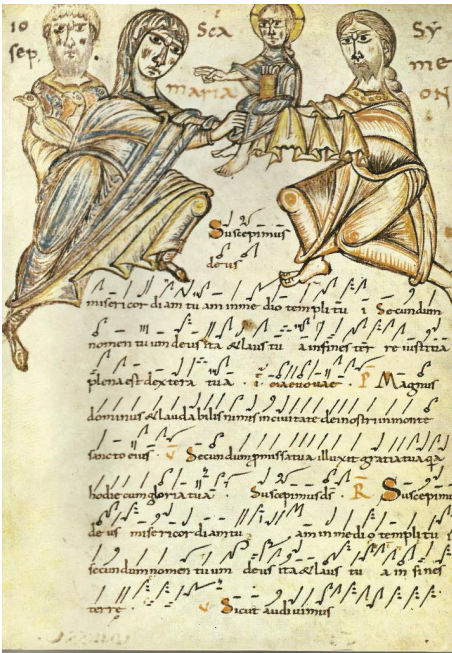 IO SCA SY
SEP MARIA ME
ON
Suscepimus
deus
misericordiam tuam in medio templi tu i Secundum
nomen tuum deus ita & laus tu a in fines ter re iustitia
plena est dextera tua . euouae . P Magnus
dominus & laudabilis nimis in civitate dei nostri in monte
sancto eius . V Secundum promissa tua illuxit gratia tua
hodie cum gloria tua . Suscepimus ds . R Suscepimu
deus misericordiam tu am in medio templi tu i
secundum nomen tuum deus ita & laus tu a in fines
terre . V Sicut audivimus